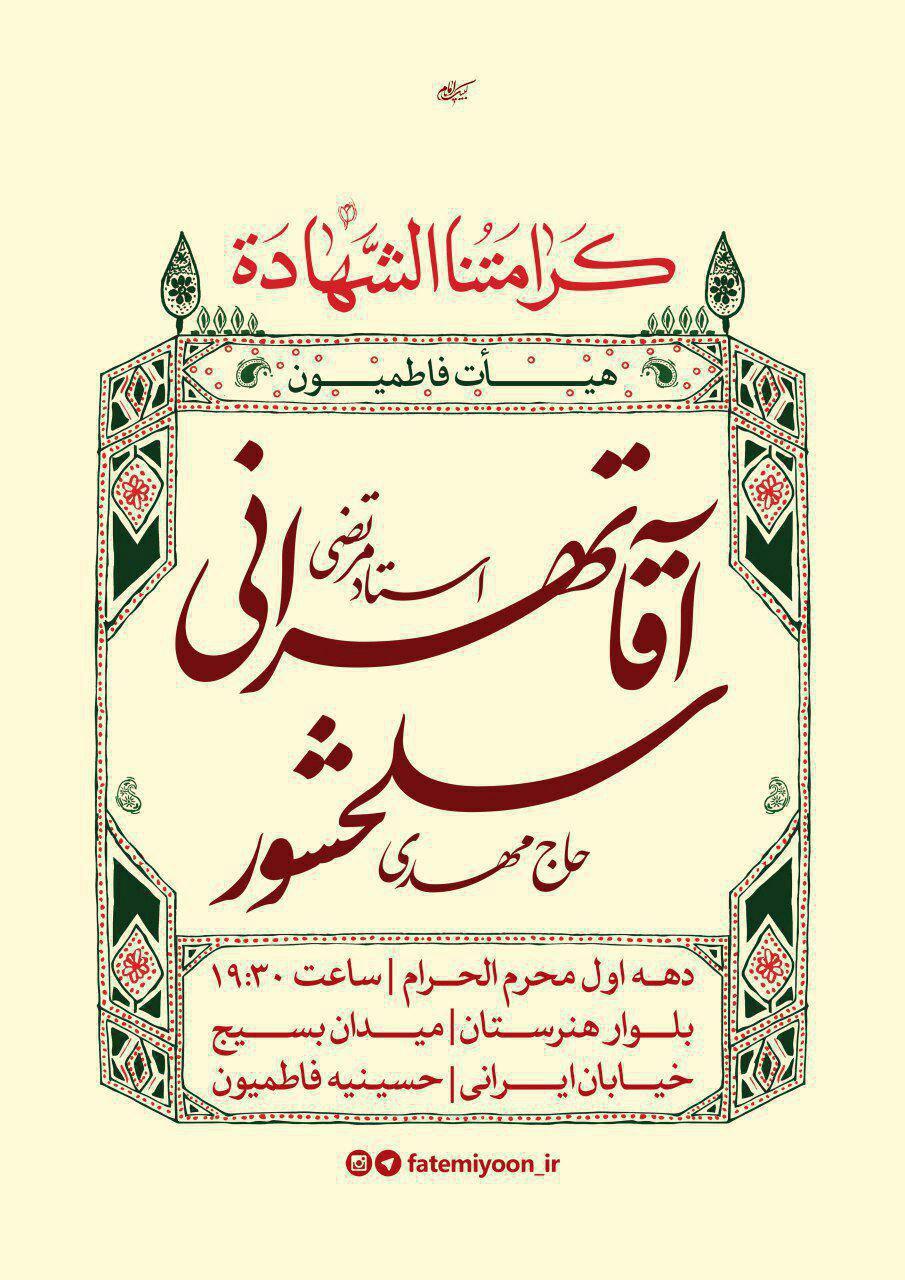 لبیک یا امام
کَرامَتُنا الشَّهادَة
هیأت فاطمیون
استاد مرتضی
آقاتهرانی
حاج مهدی
سلحشور
دهه اول محرم الحرام | ساعت ۱۹:۳۰
بلوار هنرستان | میدان بسیج
خیابان ایرانی | حسینیه فاطمیون
fatemiyoon_ir